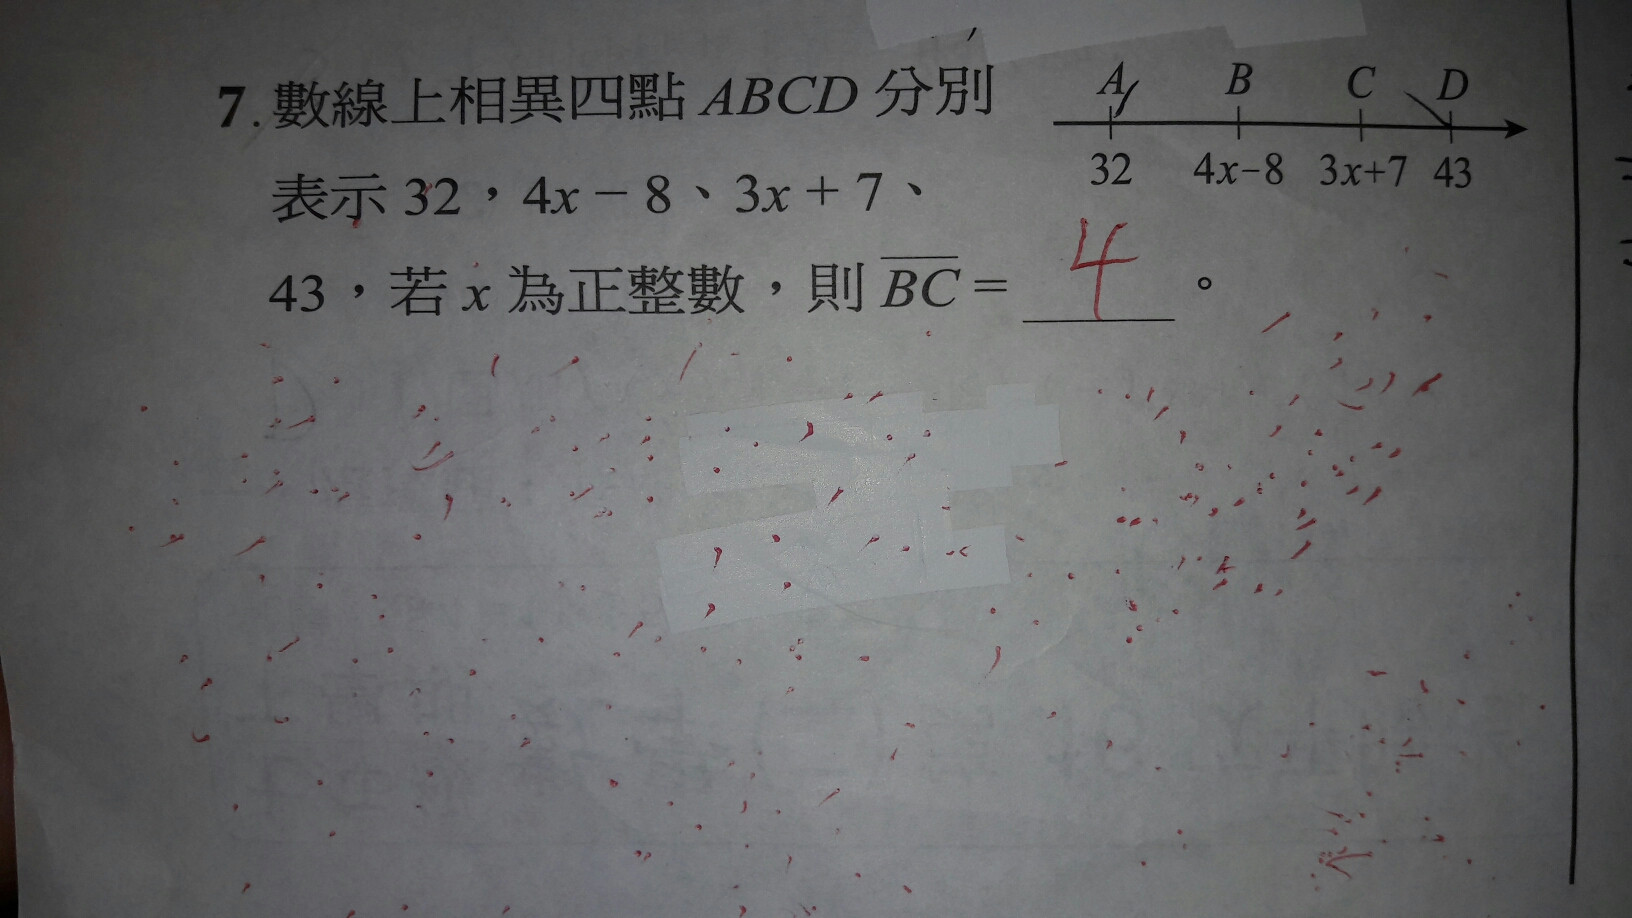 7.數線上相異四點 ABCD 分別
表示 32，4x－8、3x＋7、
43，若 x 為正整數，則 BC＝ 4 。
A B C D
32 4x−8 3x+7 43